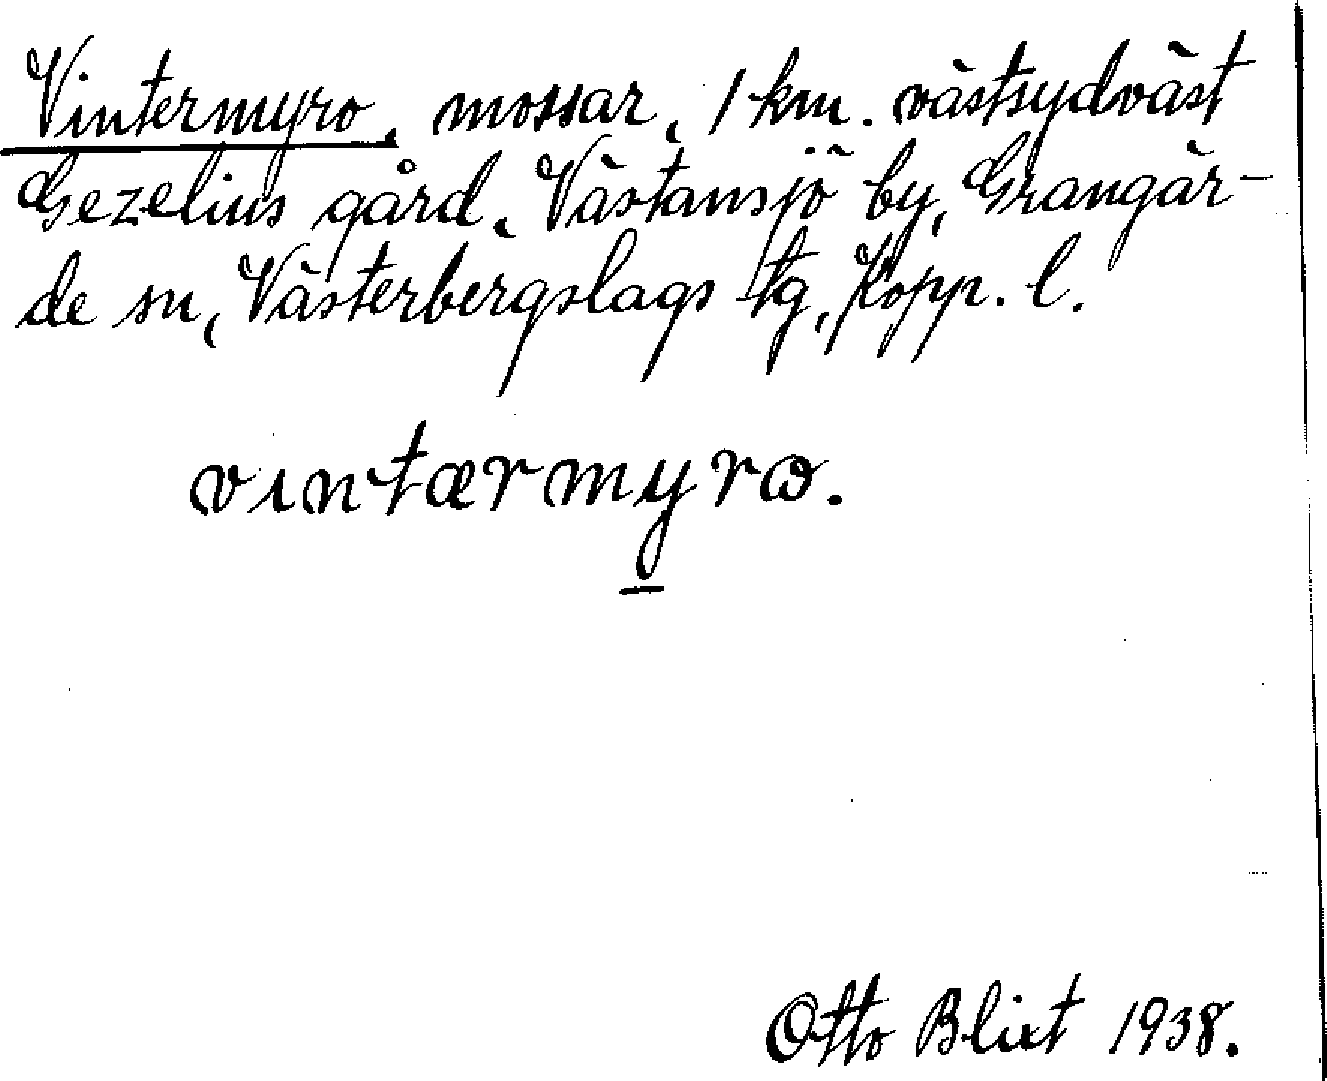 Vintermyro, mossar, 1 km. västsydväst
Gezelius gård, Västansjö by, Grangär-
de sn, Västerbergslags tg, Kopp. l.
vintærmyrω.
Otto Blixt 1938.